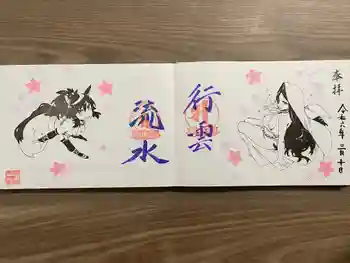 奉拝
令和六年 三月 十日
行雲
流水